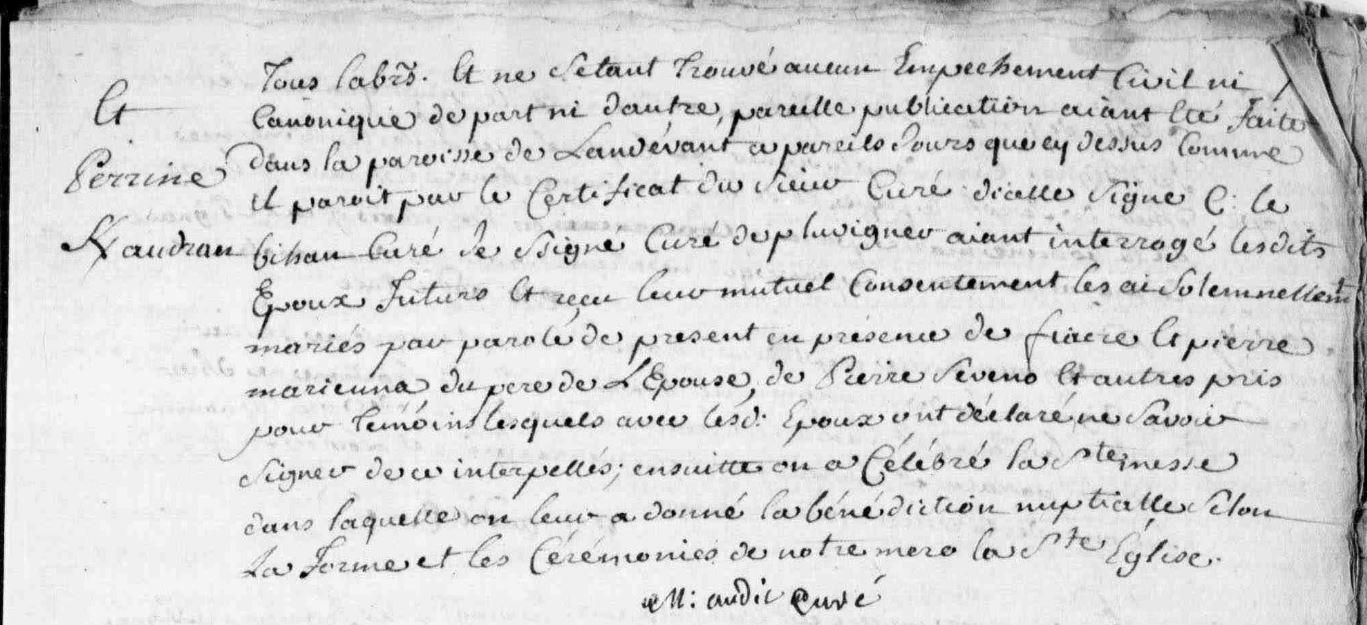 Et
Perrine
Naudran
Tous labrs. Et ne Setant Trouvé aucun Empechement Civil ni
Canonique de part ni dautre, pareille publication aiant Eté faite
dans la paroisse de Landévant a pareils Jours que cy dessus Comme
il paroit par le Certificat du Sieur Curé dicelle Signe C: le
bihan Curé Je Ssigne Curé de pluvigner aiant interrogé lesdits
Epoux futurs Et reçu leur mutuel Consentement les ai Solemnellemt
mariés par parole de present en presence de fiacre Et pierre
marienna du pere de L'Epouse, de Pierre Seveno Et autres pris
pour Témoins lesquels avec lesd: Epoux ont déclaré ne Savoir
Signer de ce interpelles; ensuitte on a Célébré la Ste messe
dans laquelle on leur a donné la bénédiction nuptialle Selon
La forme et les Cérémonies de notre mere la Ste Église.
audic Curé